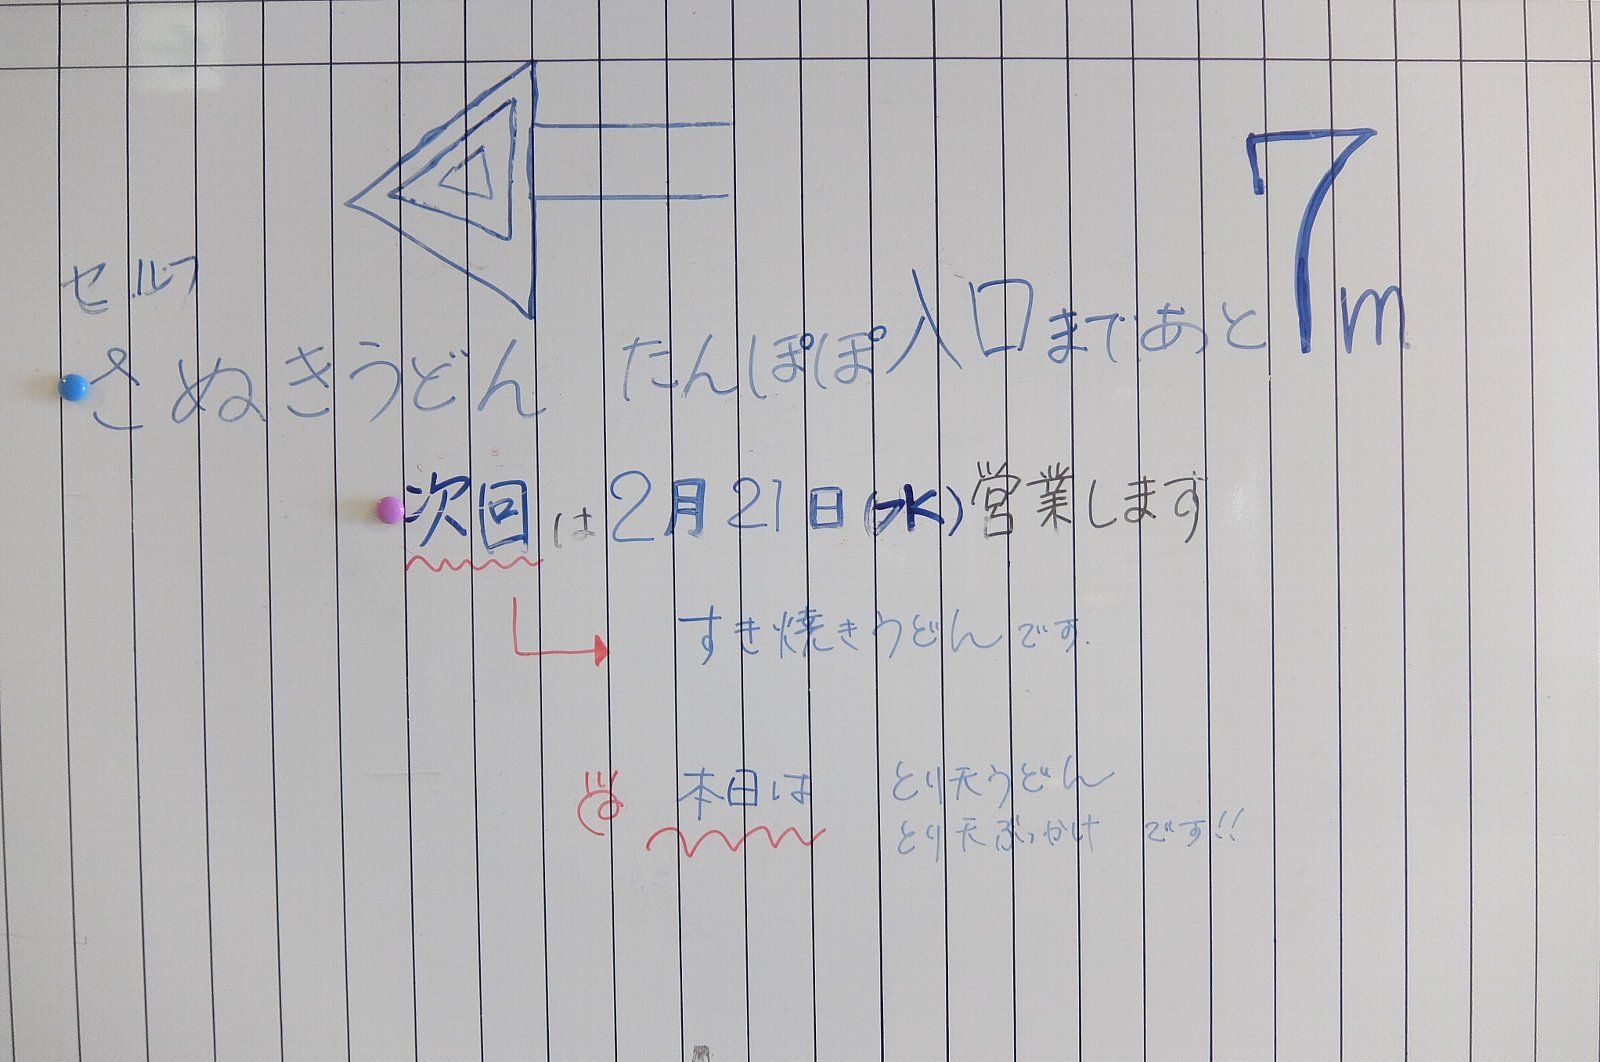 セルフ
さぬきうどん たんぽぽ入口まであと7m
次回は2月21日(水)営業します
すき焼きうどんです
本日は とり天うどん
とり天ぶっかけ です!!